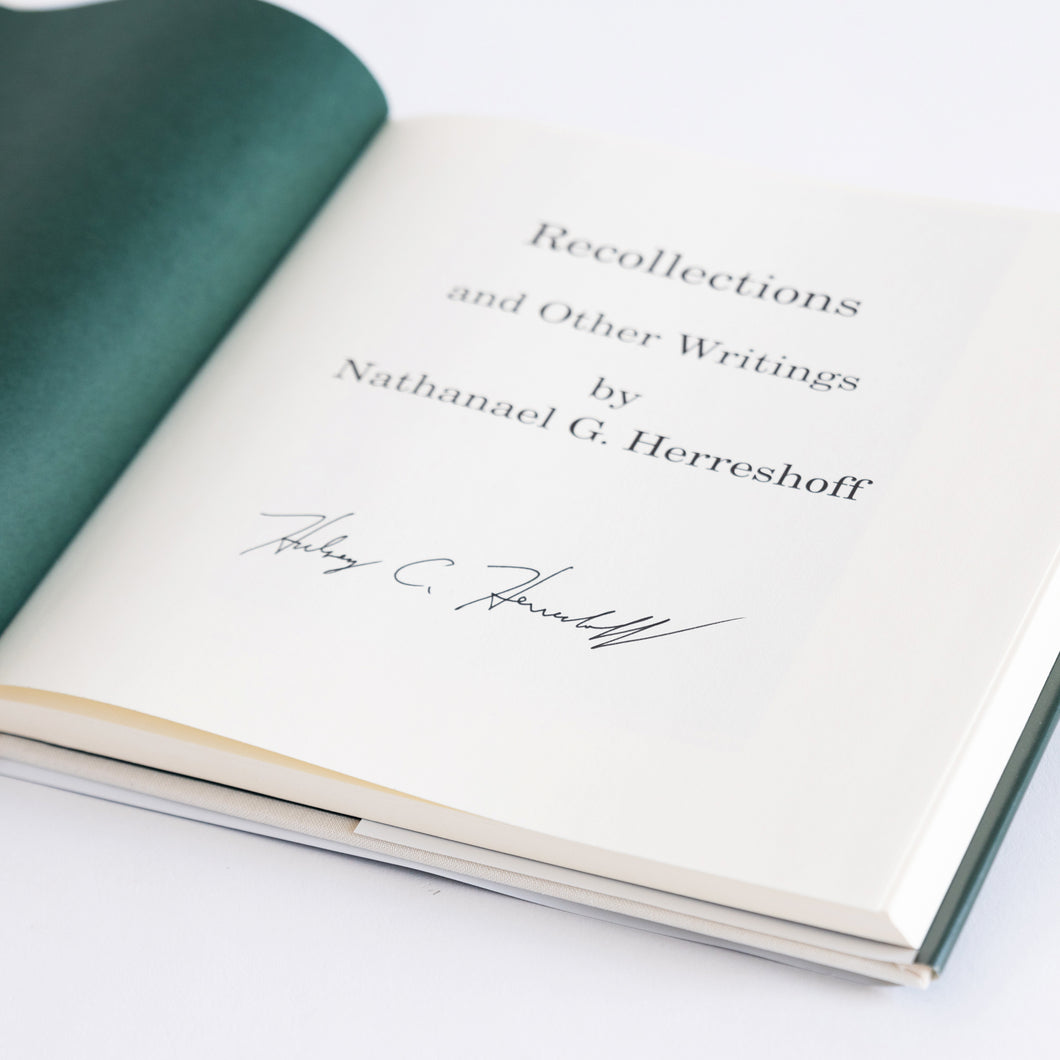 Recollections
and Other Writings
by
Nathanael G. Herreshoff
Halsey C. Herreshoff